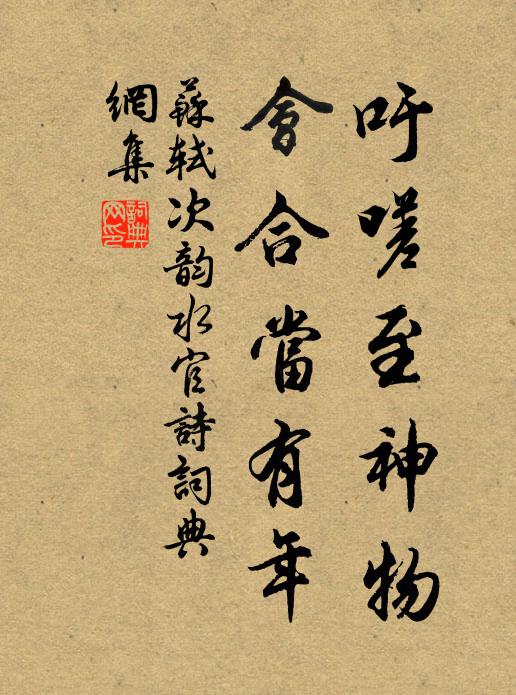 吁嗟至神物
會合當有年
蘇軾次韵水官詩詞典
網集
詞典
网印